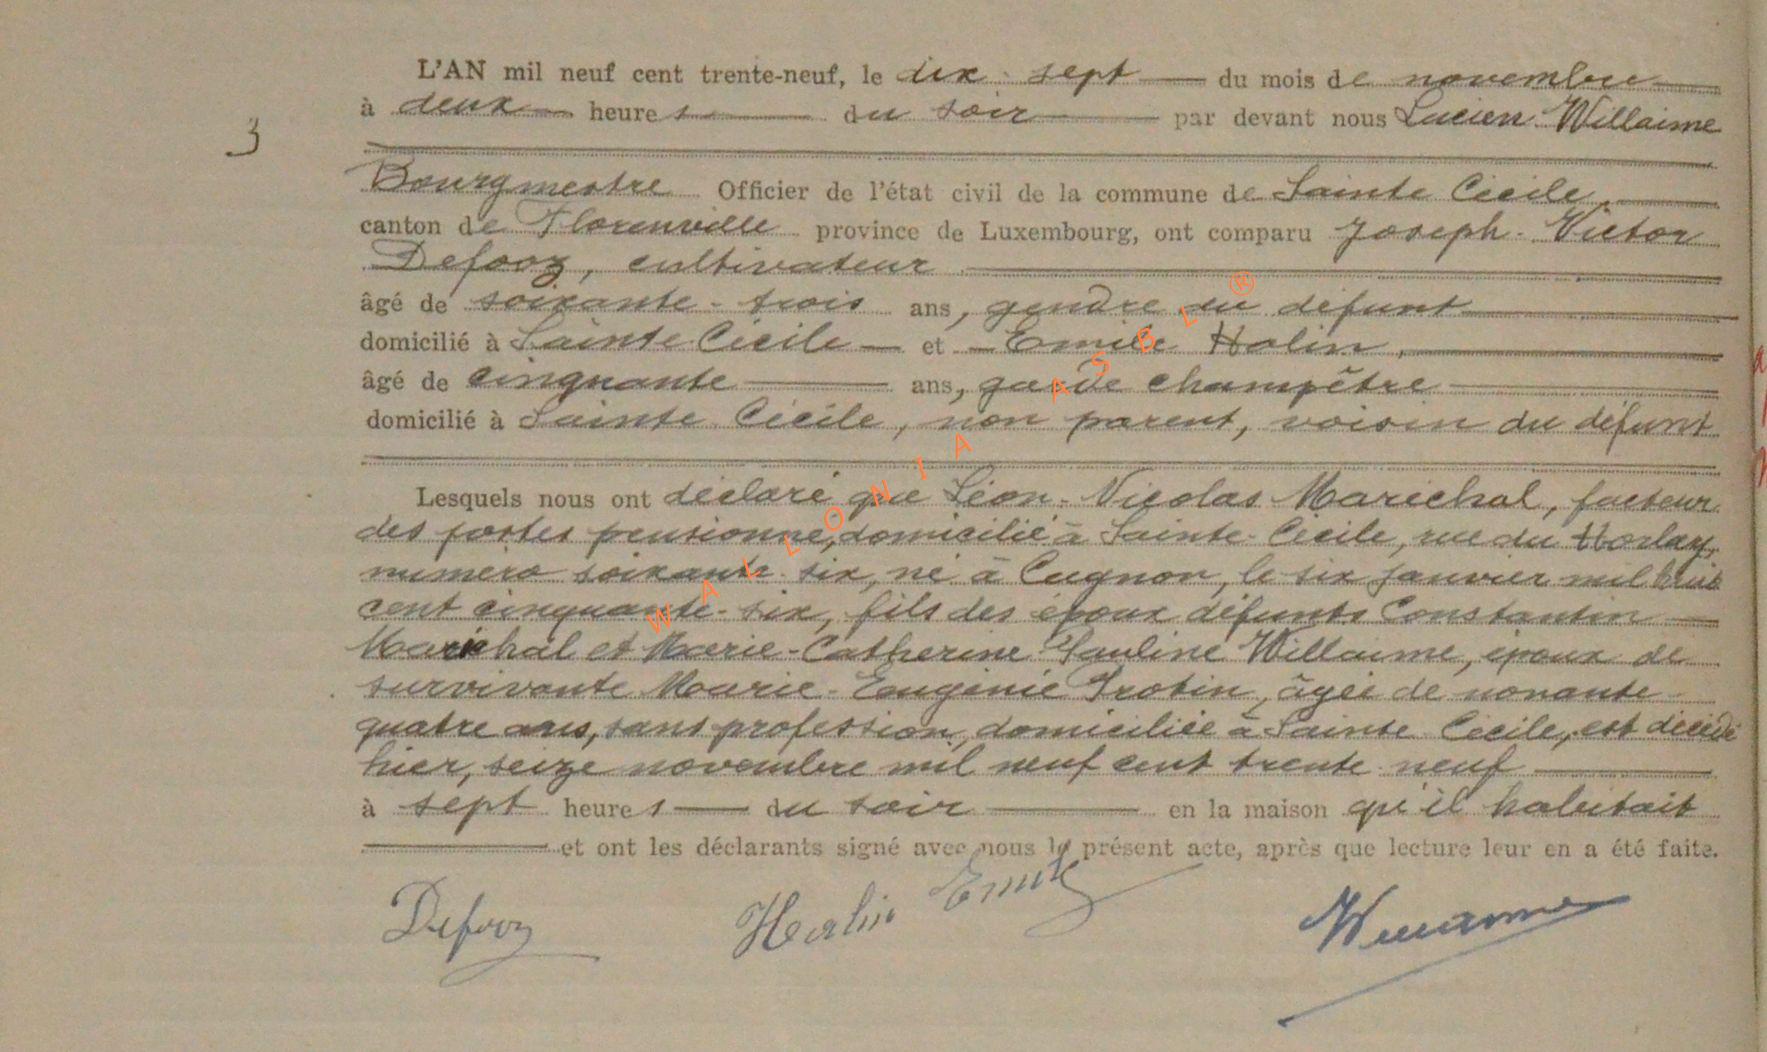 L'AN mil neuf cent trente-neuf, le dix-sept du mois de novembre
à deux heures du soir par devant nous Lucien Willaime
3
Bourgmestre Officier de l'état civil de la commune de Sainte Cécile,
canton de Florenville province de Luxembourg, ont comparu Joseph-Victor
Defooz, cultivateur
âgé de soixante-trois ans, gendre du défunt
domicilié à Sainte Cécile et Emile Halin,
âgé de cinquante ans, garde champêtre
domicilié à Sainte Cécile, non parent, voisin du défunt
Lesquels nous ont déclaré que Léon-Nicolas Maréchal, facteur
des postes pensionné, domicilié à Sainte-Cécile, rue du
numéro soixante-six, né à Cugnon, le six janvier mil huit
cent cinquante-six, fils des époux défunts Constantin
Maréchal et Marie-Catherine-Pauline Willaime, époux de
survivante Marie-Eugénie Trotin, âgée de nonante-
quatre ans, sans profession, domiciliée à Sainte Cécile, est décédé
hier, seize novembre mil neuf cent trente-neuf
à sept heures du soir en la maison qu'il habitait
et ont les déclarants signé avec nous le présent acte, après que lecture leur en a été faite.
Defooz Halin Emile Willaime
WALLONIA ASBL ®